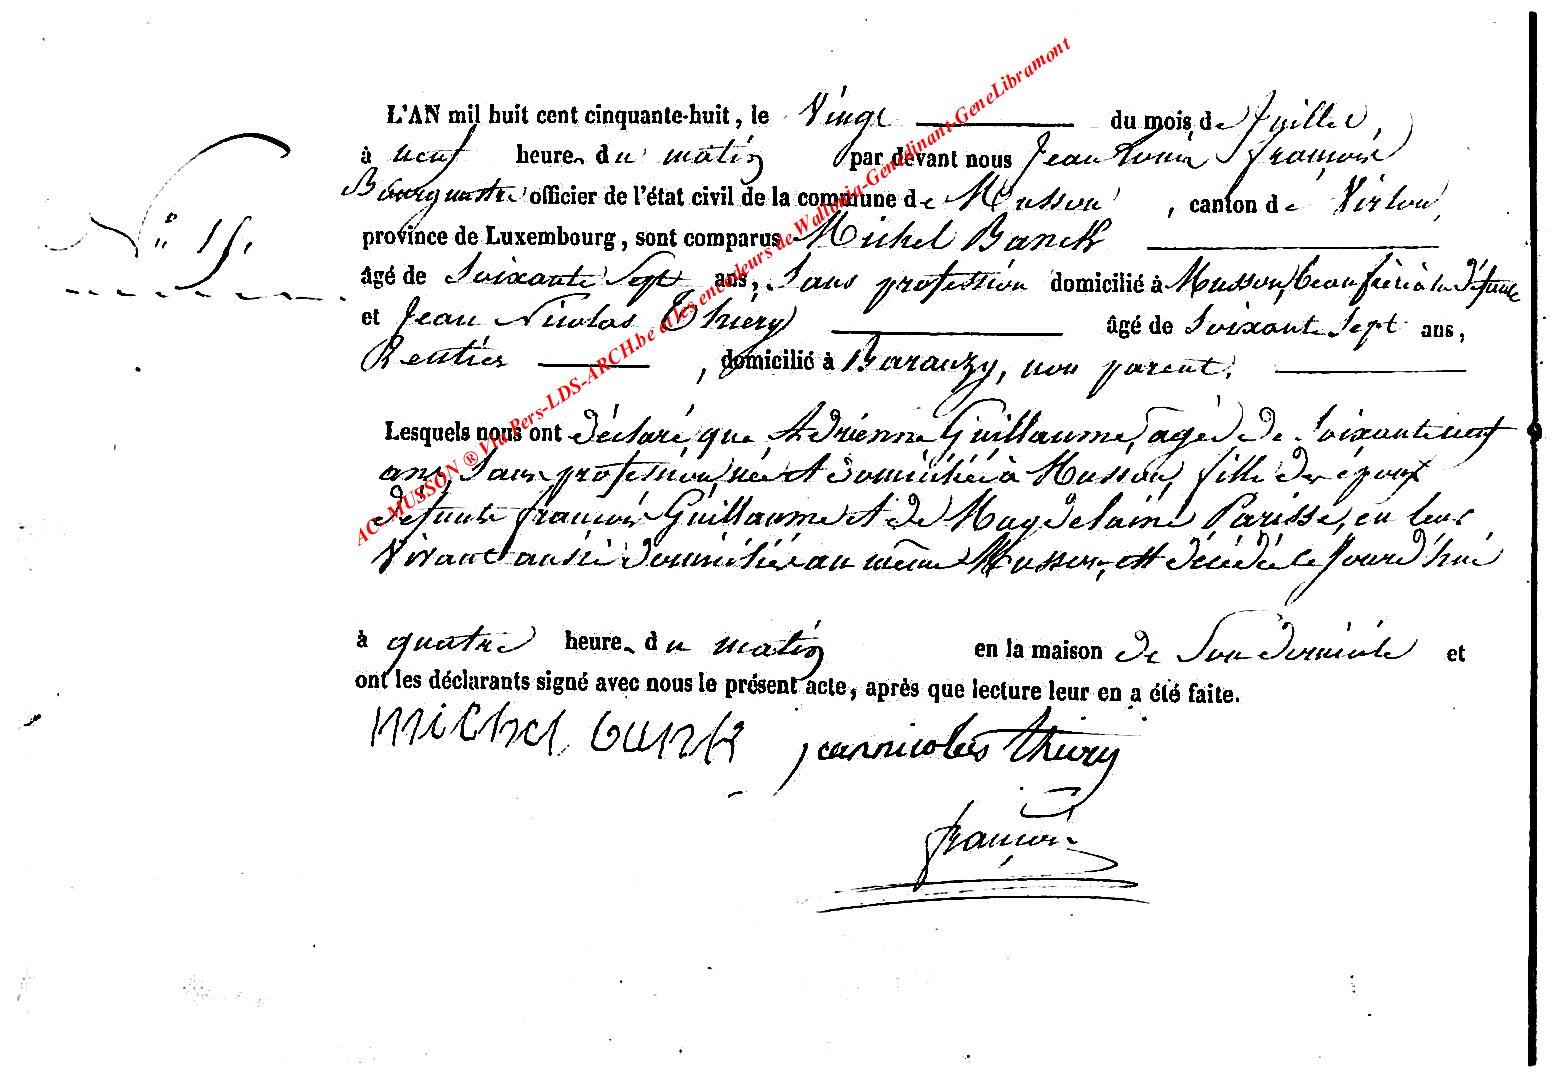 L'AN mil huit cent cinquante-huit, le Vingt du mois de Juillet,
à neuf heure du matin par devant nous Jean Louis françois
Bourgmestre officier de l'état civil de la commune de Musson, canton de Virton,
N° 15.
province de Luxembourg, sont comparus Michel Banck
âgé de Soixante Sept ans, Sans profession domicilié à Musson, beau frère à la défunte
et Jean Nicolas Thiery âgé de Soixante Sept ans,
Rentier, domicilié à Baranzy, non parent.
Lesquels nous ont déclaré que Adrienne Guillaume, agée de Soixante neuf
ans, Sans profession, née et domiciliée à Musson, fille des époux
défunts françois Guillaume et de Magdelaine Parisse, en leur
Vivant aussi domiciliés au même Musson, est décédée ce Jourd'hui
à quatre heure du matin en la maison de Son domicile et
ont les déclarants signé avec nous le présent acte, après que lecture leur en a été faite.
Michel bunk jeannicolas thiery
françois
AC-MUSSON ® Via Pers-LDS-ARCH.be et les encodeurs de Wallonia-Genedinant-GeneLibramont